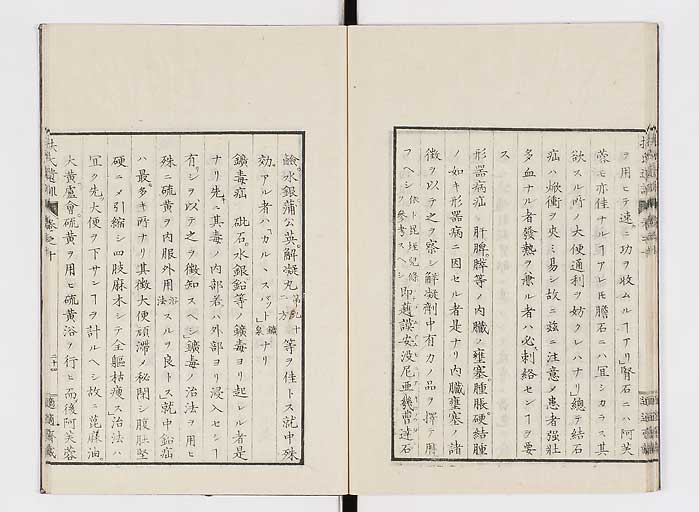 ヲ用ヒテ速ニ功ヲ收ムルヿアリ」腎石ニハ阿芙
蓉モ亦佳ナルヿアレ𪜈膽石ニハ宜シカラス其
欲スル所ノ大便通利ヲ妨クレハナリ」總テ結石
疝ハ焮衝ヲ夾ミ易シ故ニ茲ニ注意ノ患者強壯
多血ナル者發熱ヲ兼ル者ハ必刺絡センヿヲ要
ス
形器病疝 肝脾膵等ノ内臟ノ壅塞腫脹硬結腫
ノ如キ形器病ニ因セル者是ナリ内臟壅塞ノ諸
徴ヲ以テ之ヲ察シ解凝劑中有力ノ品ヲ擇テ用
フヘシ
依卜昆垤兒條
ヲ參考スヘシ
即
鹼水銀蒲公英解凝丸
第九十
二方
等ヲ佳トス就中殊
効アル者ハ「カルヽスバット
鑛
泉
ナリ
鑛毒疝 砒石水銀鉛等ノ鑛毒ヨリ起レル者是
ナリ先其毒ノ内部若ハ外部ヨリ浸入セシヿ
有シヲ以テ之ヲ徴知スヘシ」鑛毒ノ治法ヲ用ヒ
殊ニ硫黄ヲ内服外用
浴
法
スルヲ良トス」就中鉛疝
ハ最多キ所ナリ其徴大便頑滯ノ秘閉シ腹肚堅
硬ニメ引縮シ四肢麻木シテ全軀枯瘦ス」治法ハ
宜ク先ツ大便ヲ下サンヿヲ計ルヘシ故ニ蓖麻油
大黄蘆會硫黄ヲ用ヒ硫黄浴ヲ行ヒ而後阿芙蓉
扶氏遺訓
卷之十
適適齋藏